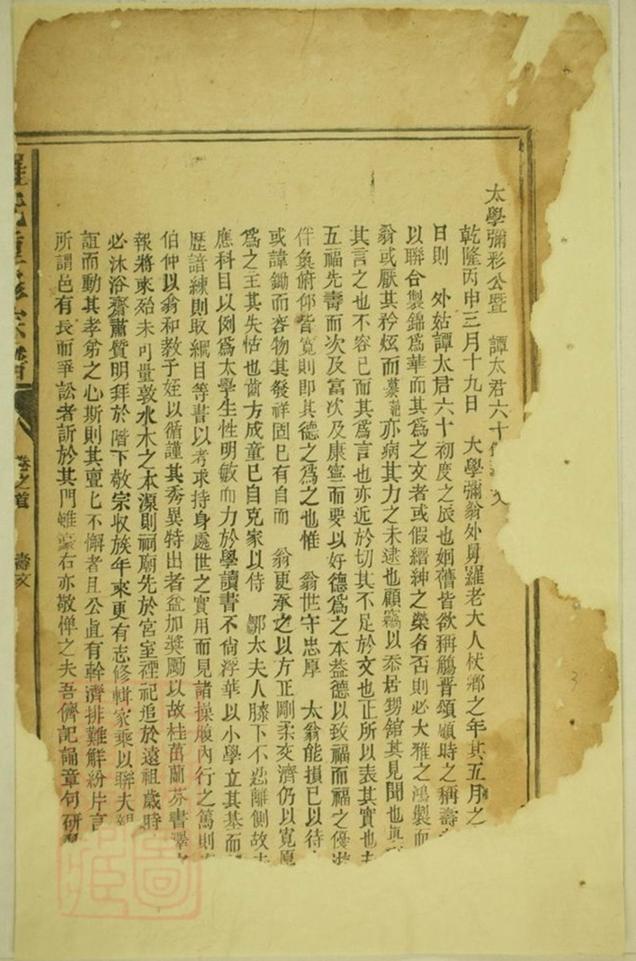 太學彌彩公暨 譚太君六十
乾隆丙申三月十九日 大學彌翁外舅羅老大人杖鄉之年其五月之
日則 外姑譚太君六十初度之辰也姻舊皆欲稱觴晉頌顧時之稱壽
以聯合製錦為華而其為之文者或假縉紳之榮名否則必大雅之鴻製而
翁或厭其矜炫而 亦病其力之未逮也顧竊以忝居甥舘其見聞也真
其言之也不容已而其為言也亦近於切其不足於文也正所以表其實也
五福先壽而次及富次及康寧而要以好德為之本益德以致福而福之優
伴奐俯仰皆寬則即其德之為之也惟 翁世守忠厚 太翁能損己以待
或諱鋤而容物其發祥固已有自而 翁更承之以方正剛柔交濟仍以寬
為之王其失怙也齒方成童已自克家以侍 鄒太夫人膝下不忍離側故
應科目以例為太學生性明敏而力於學讀書不尙浮華以小學立其基而
歷諳練則取綱目等書以考求持身處世之實用而見諸操履內行之篤則
伯仲以翁和教子姪以循謹其秀異特出者益加奬勵以故桂茁蘭芬書澤
報將來殆未可量敦水木之本源則祠廟先於宮室禋祀追於遠祖歲時
必沐浴齋肅贊明拜於階下敬宗收族年來更有志修輯家乘以聯夫親
誼而動其孝弟之心斯則其亹亹不懈者且公直有幹濟排難解紛片言
所謂邑有長而爭訟者訴於其門雖豪右亦敬憚之夫吾儕記誦章句研
羅氏重修宗譜
卷之首
壽文